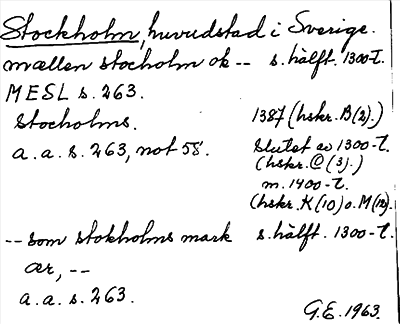 Stockholm, huvudstad i Sverige.
mællen stocholm ok -- s. hälft. 1300-t.
MESL s. 263.
stocholms. 1387 (hskr. B(2).)
a. a. s. 263, not 58. slutet av 1300-t.
(hskr. C (3).)
m. 1400-t.
(hskr. K (10) o. M (12).
-- som stokholms mark s. hälft. 1300-t.
ær, --
a. a. s. 263.
G.E. 1963.